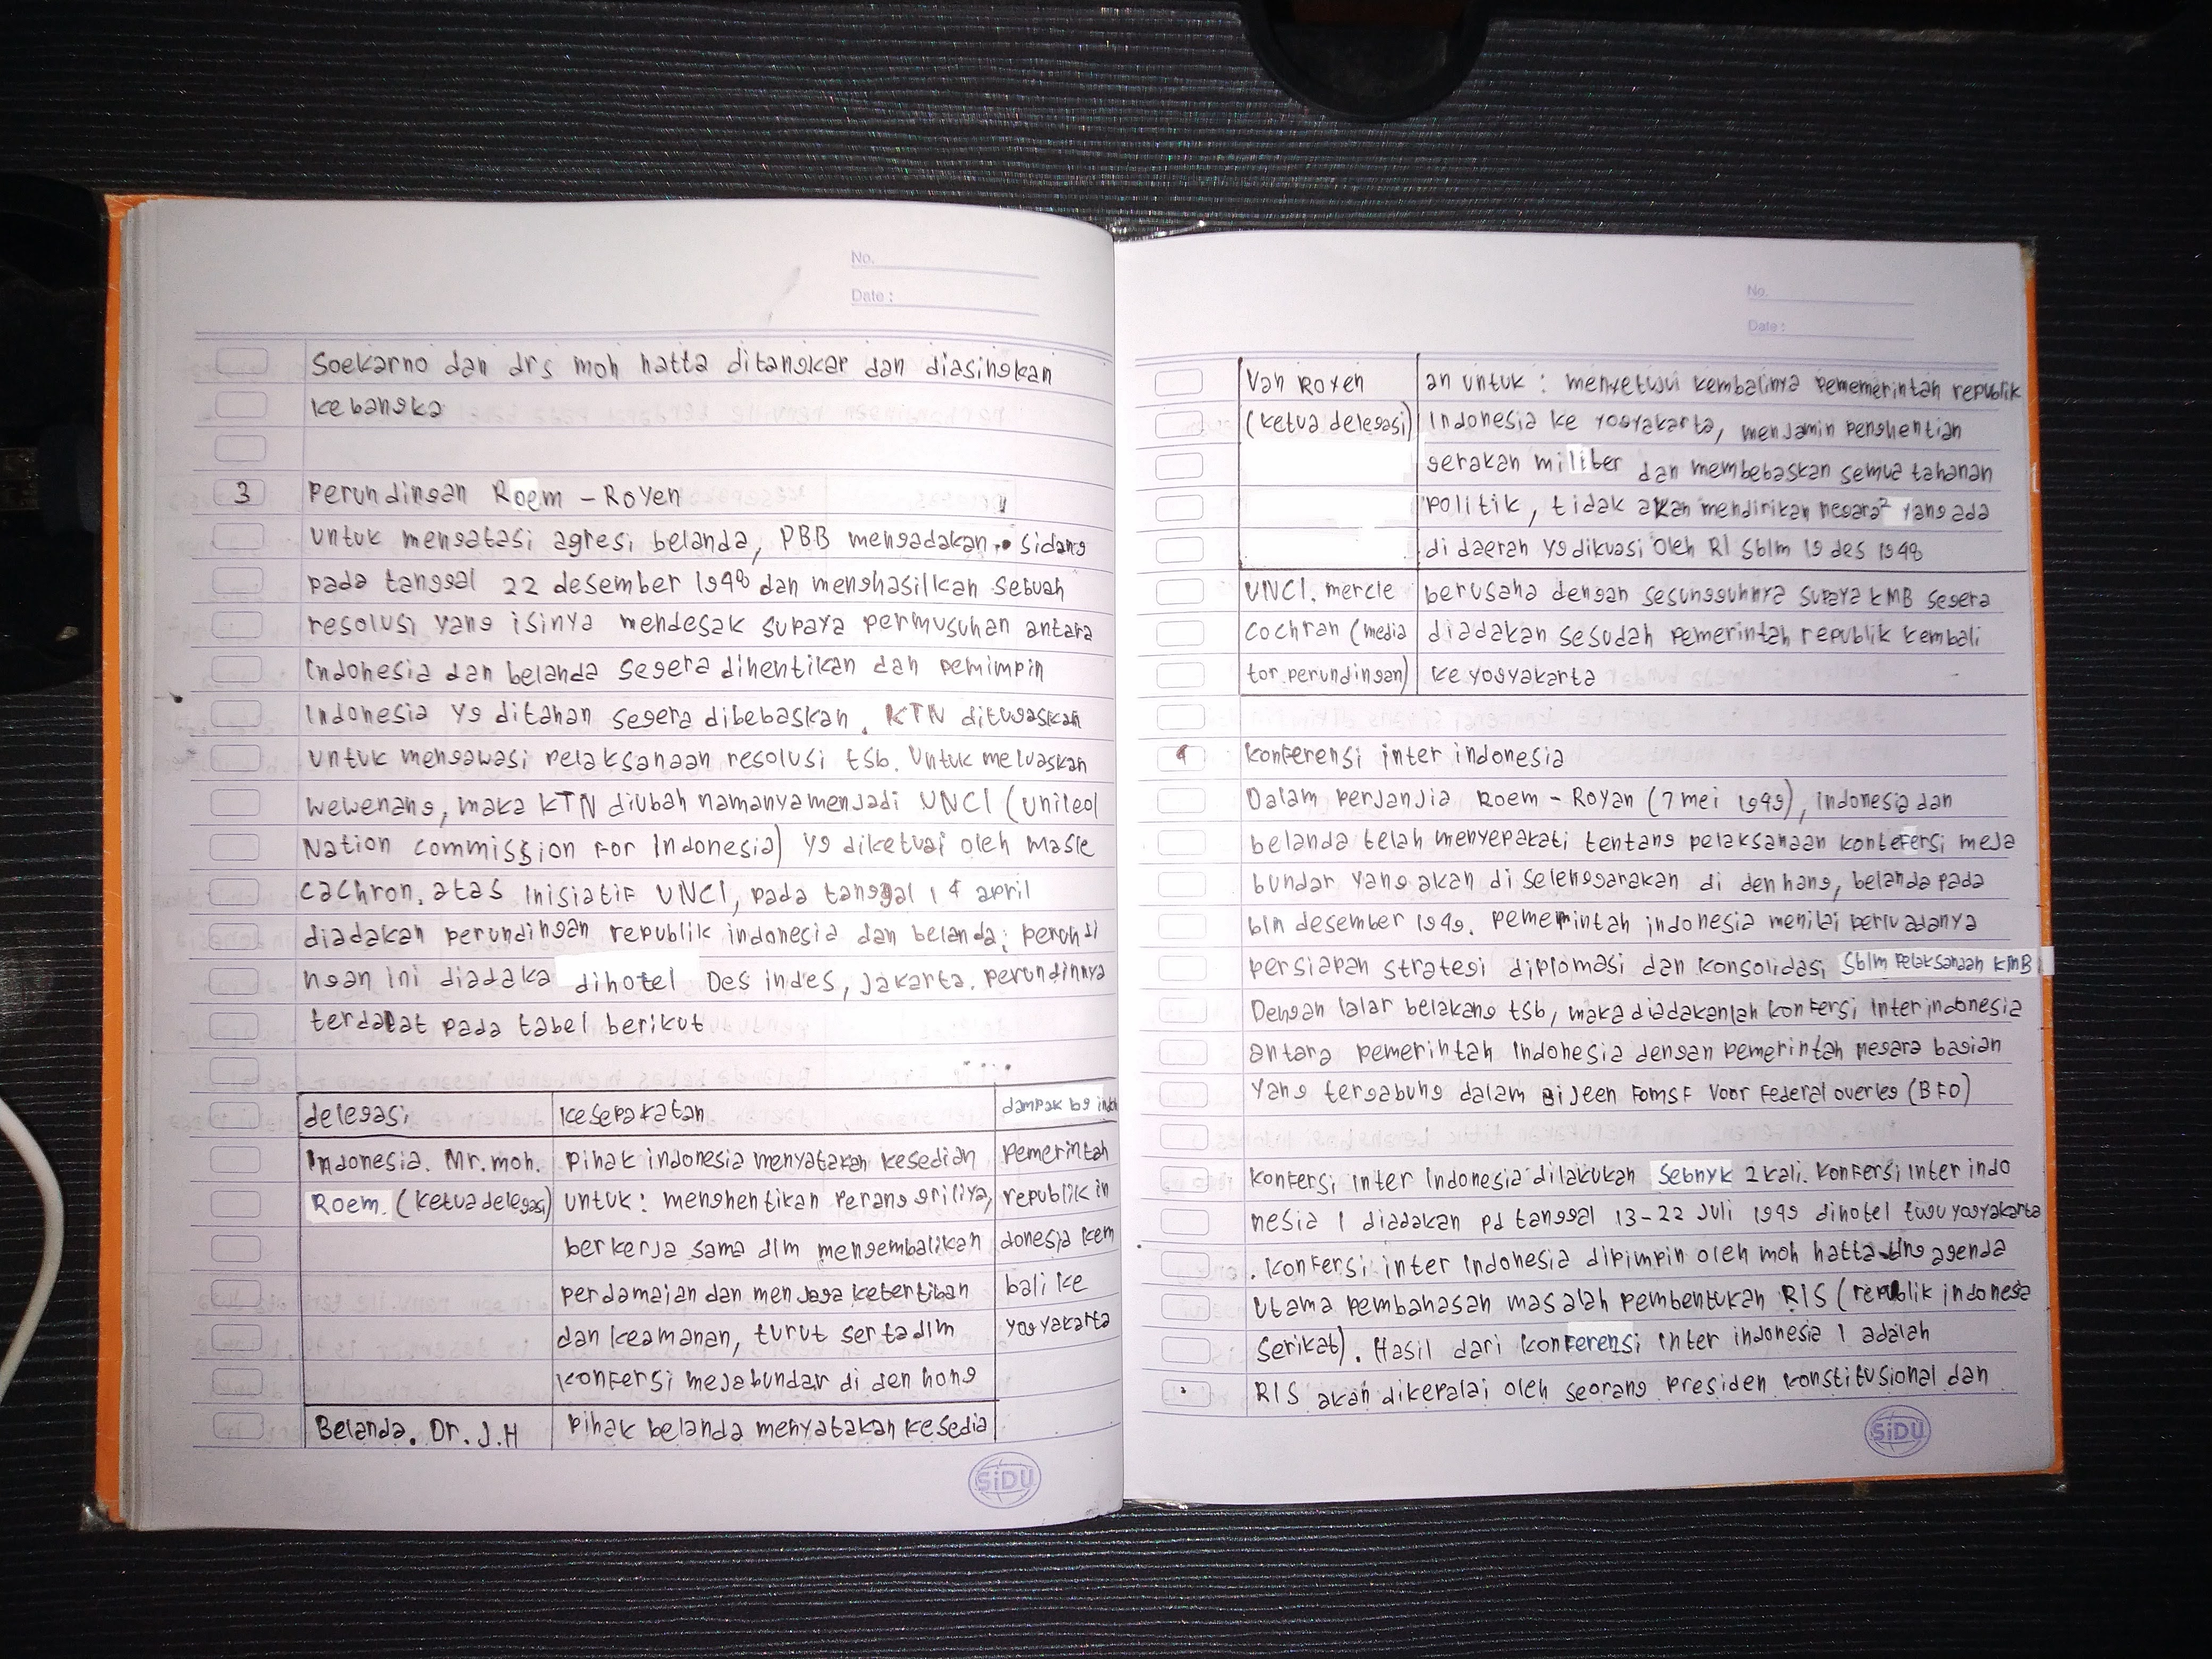 No.
Date :
Soekarno dan drs moh hatta ditangkap dan diasingkan
kebangka
3 perundingan Roem - Royen
untuk mengatasi agresi belanda, PBB mengadakan sidang
pada tanggal 22 desember 1948 dan menghasilkan sebuah
resolusi yang isinya mendesak supaya permusuhan antara
Indonesia dan belanda segera dihentikan dan pemimpin
Indonesia yg ditahan segera dibebaskan. KTN ditugaskan
untuk mengawasi pelaksanaan resolusi tsb. Untuk meluaskan
wewenang, maka KTN diubah namanya menjadi UNCI (United
Nation commission For Indonesia) yg diketuai oleh Masle
cachron. atas Inisiatif UNCI, pada tanggal 14 april
diadakan perundingan republik indonesia dan belanda; perundi
ngan ini diadaka dihotel Des indes, Jakarta. perundinnya
terdapat pada tabel berikut
delegasi kesepakatan dampak bg indo
Indonesia. Mr. moh. pihak indonesia menyatakan kesedian pemerintah
Roem. (ketua delegasi) untuk: menghentikan perang griliya, republik in
berkerja sama dlm mengembalikan donesia kem
perdamaian dan menjaga ketertiban bali ke
dan keamanan, turut serta dlm yogyakarta
konfersi meja bundar di den hong
Belanda. Dr. J.H pihak belanda menyatakan kesedia
SiDU
No.
Date :
Van Royen an untuk: menyetujui kembalinya pememerintah republik
(ketua delegasi) Indonesia ke yogyakarta, menjamin penghentian
gerakan miliber dan membebaskan semua tahanan
politik, tidak akan mendirikan negara² yang ada
di daerah yg dikuasi oleh RI sblm 19 des 1948
UNCI. mercle berusaha dengan sesungguhnya supaya KMB segera
cochran (media diadakan sesudah pemerintah republik kembali
tor perundingan) ke yogyakarta
4 konferensi inter indonesia
Dalam perjanjia Roem - Royan (7 mei 1949), indonesia dan
belanda telah menyepakati tentang pelaksanaan kontefersi meja
bundar yang akan di selenggarakan di den hang, belanda pada
bln desember 1949. pememintah indonesia menilai perlu adanya
persiapan strategi diplomasi dan konsolidasi sblm pelaksanaan KMB
Dengan lalar belakang tsb, maka diadakanlah konfersi Inter indonesia
antara pemerintah Indonesia dengan pemerintah negara bagian
yang tergabung dalam Bijeen Fomst Voor Federal overleg (BFO)
konfersi inter Indonesia dilakukan sebnyk 2 kali. konfersi Inter indo
nesia 1 diadakan pd tanggal 13-22 Juli 1949 dihotel tugu yogyakarta
. konfersi inter Indonesia dipimpin oleh moh hatta dng agenda
Utama pembahasan masalah pembentukan RIS (republik indonesa
serikat). Hasil dari konferensi inter indonesia 1 adalah
RIS akan dikepalai oleh seorang presiden konstitusional dan
SiDU